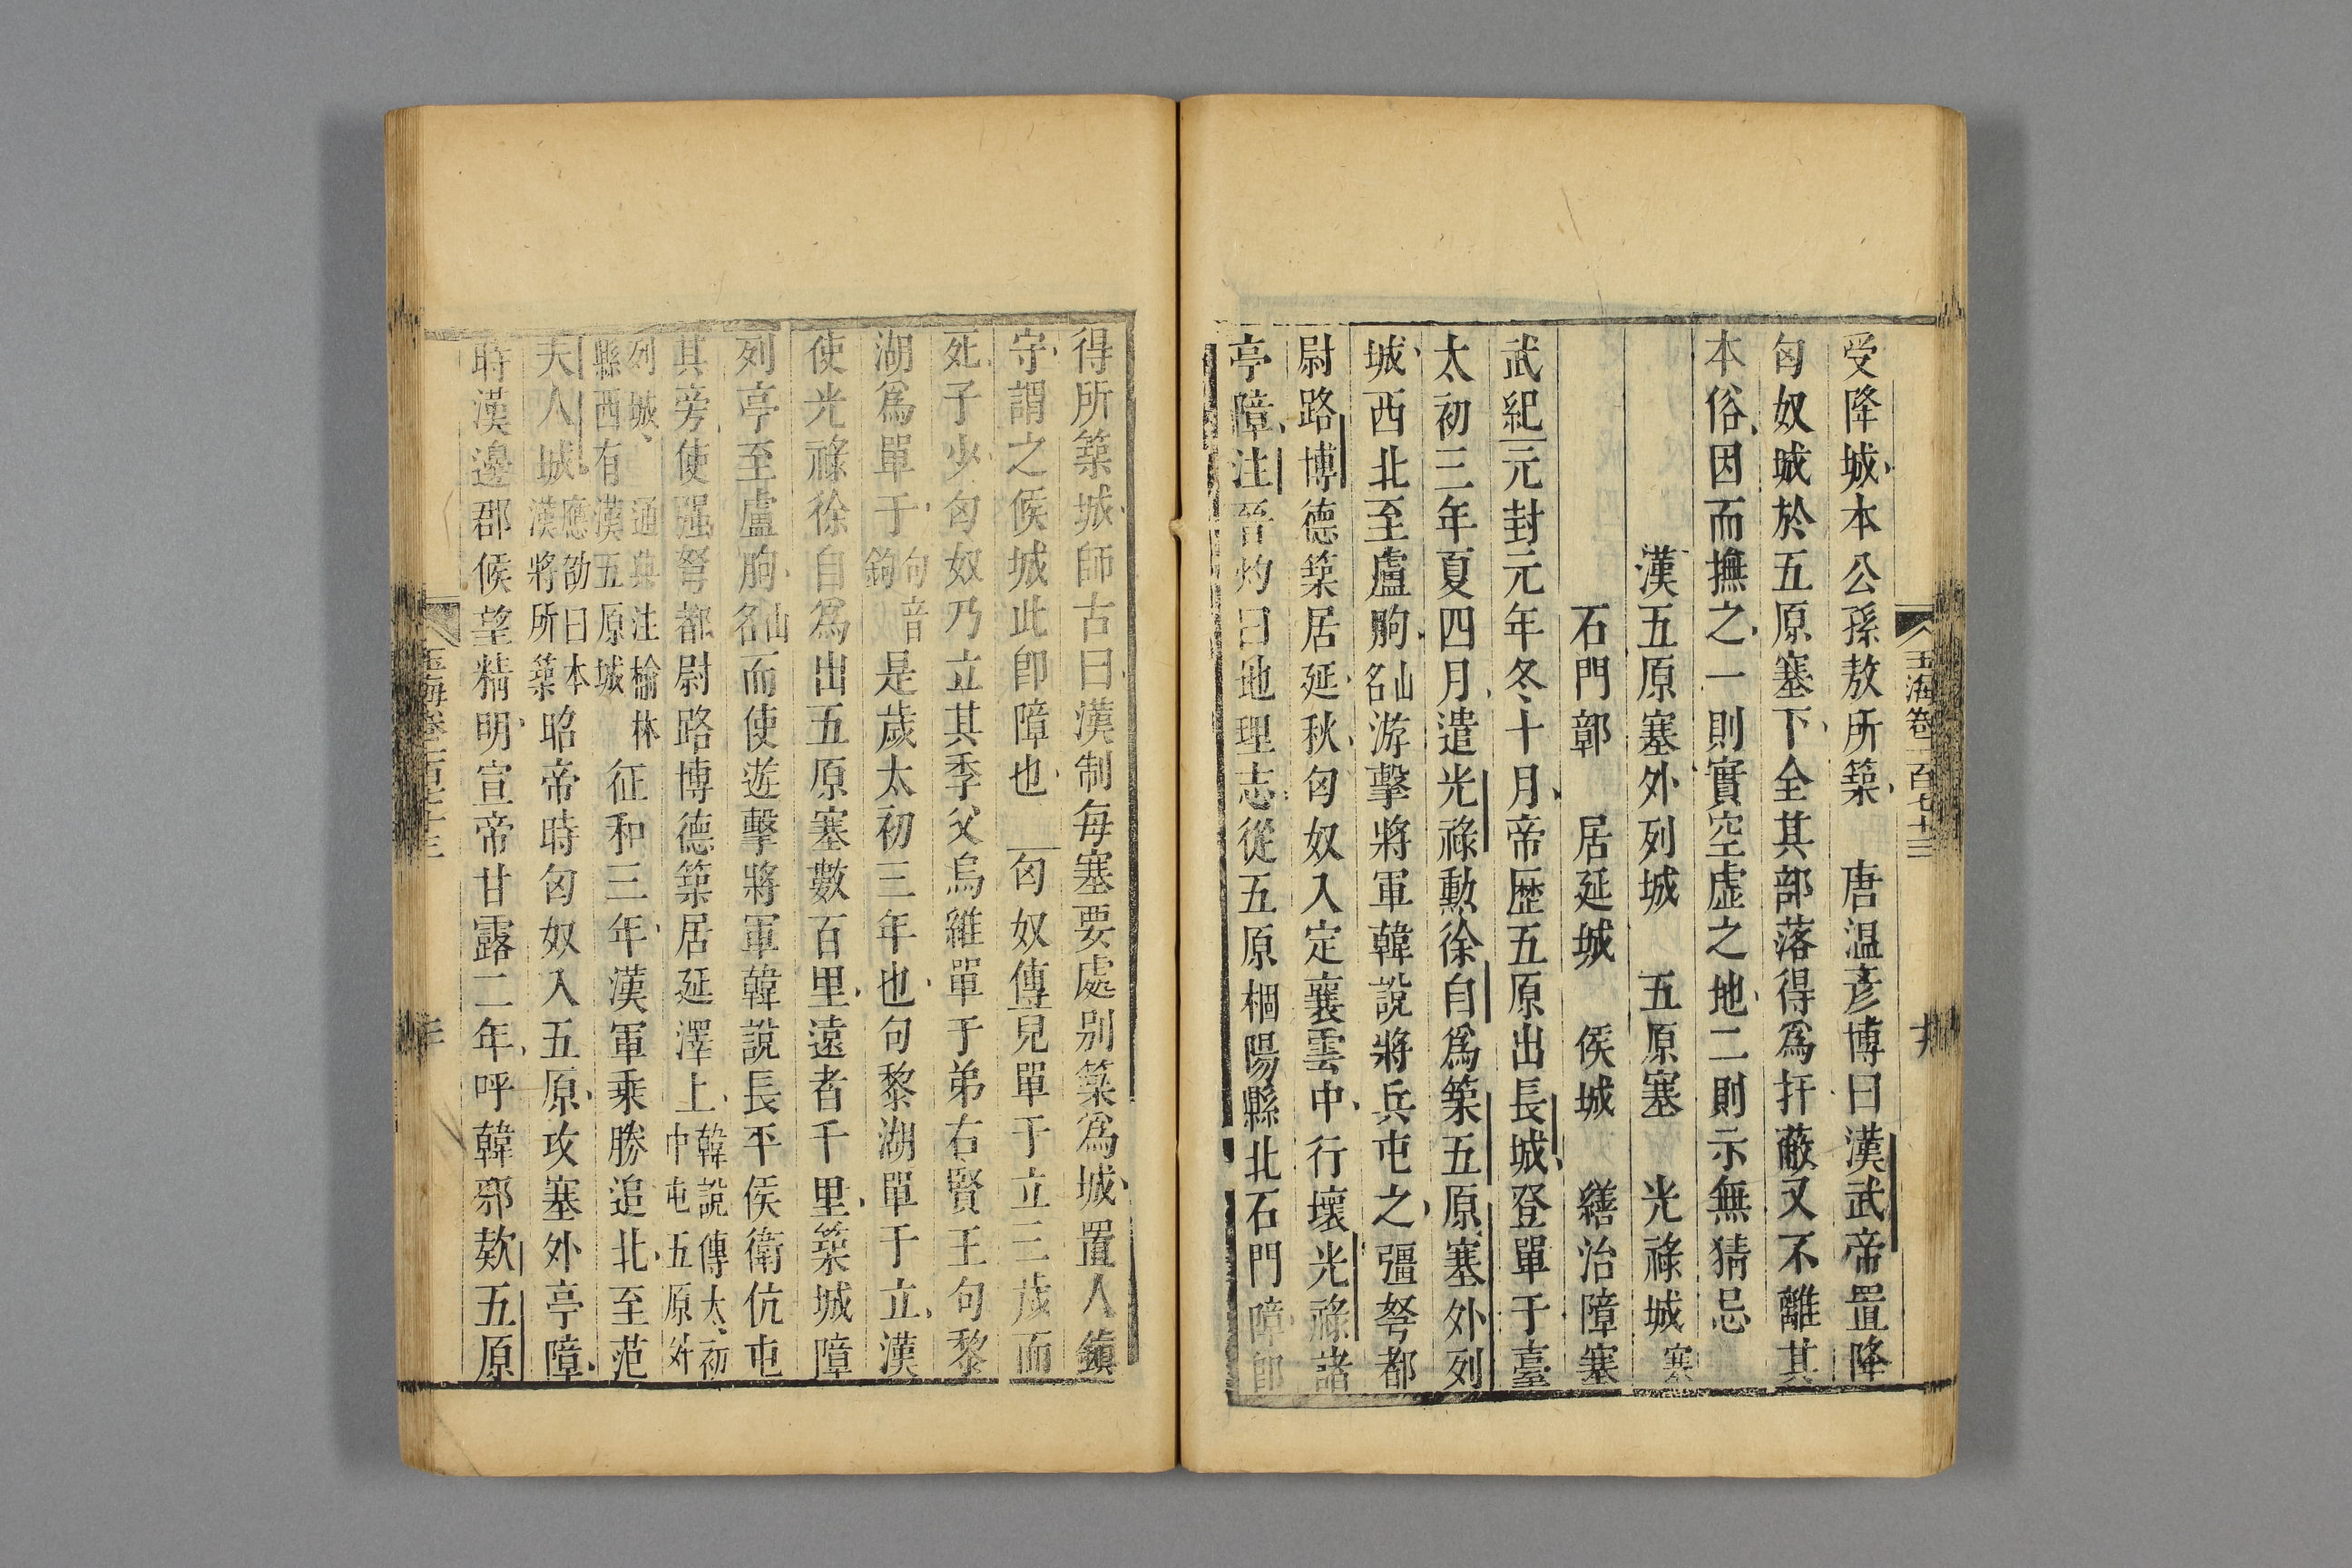 玉海卷一百七十三
受降城本公孫敖所築 唐溫彥博曰漢武帝置降
匈奴城於五原塞下全其部落得爲扞蔽又不離其
本俗因而撫之一則實空虛之地二則示無猜忌
漢五原塞外列城 五原塞 光祿城 塞
石門鄣 居延城 侯城 繕治障塞
武紀元封元年冬十月帝歷五原出長城登單于臺
太初三年夏四月遣光祿勳徐自爲築五原塞外列
城西北至盧朐山名游擊將軍韓說將兵屯之彊弩都
尉路博德築居延秋匈奴入定襄雲中行壞光祿諸
亭障注晉灼曰地理志從五原棝陽縣北石門障卽
得所築城師古曰漢制每塞要處別築爲城置人鎮
守謂之候城此卽障也 匈奴傳兒單于立三歲而
死子少匈奴乃立其季父烏維單于弟右賢王句黎
湖爲單于句音鉤是歲太初三年也句黎湖單于立漢
使光祿徐自爲出五原塞數百里遠者千里築城障
列亭至盧朐山名而使遊擊將軍韓說長平侯衛伉屯
其旁使彊弩都尉路博德築居延澤上韓說傳太初中屯五原外
列城 通典注榆林縣西有漢五原城 征和三年漢軍乘勝追北至范
夫人城應劭曰本漢將所築昭帝時匈奴入五原攻塞外亭障
時漢邊郡候望精明宣帝甘露二年呼韓邪欵五原
玉海卷一百七十三